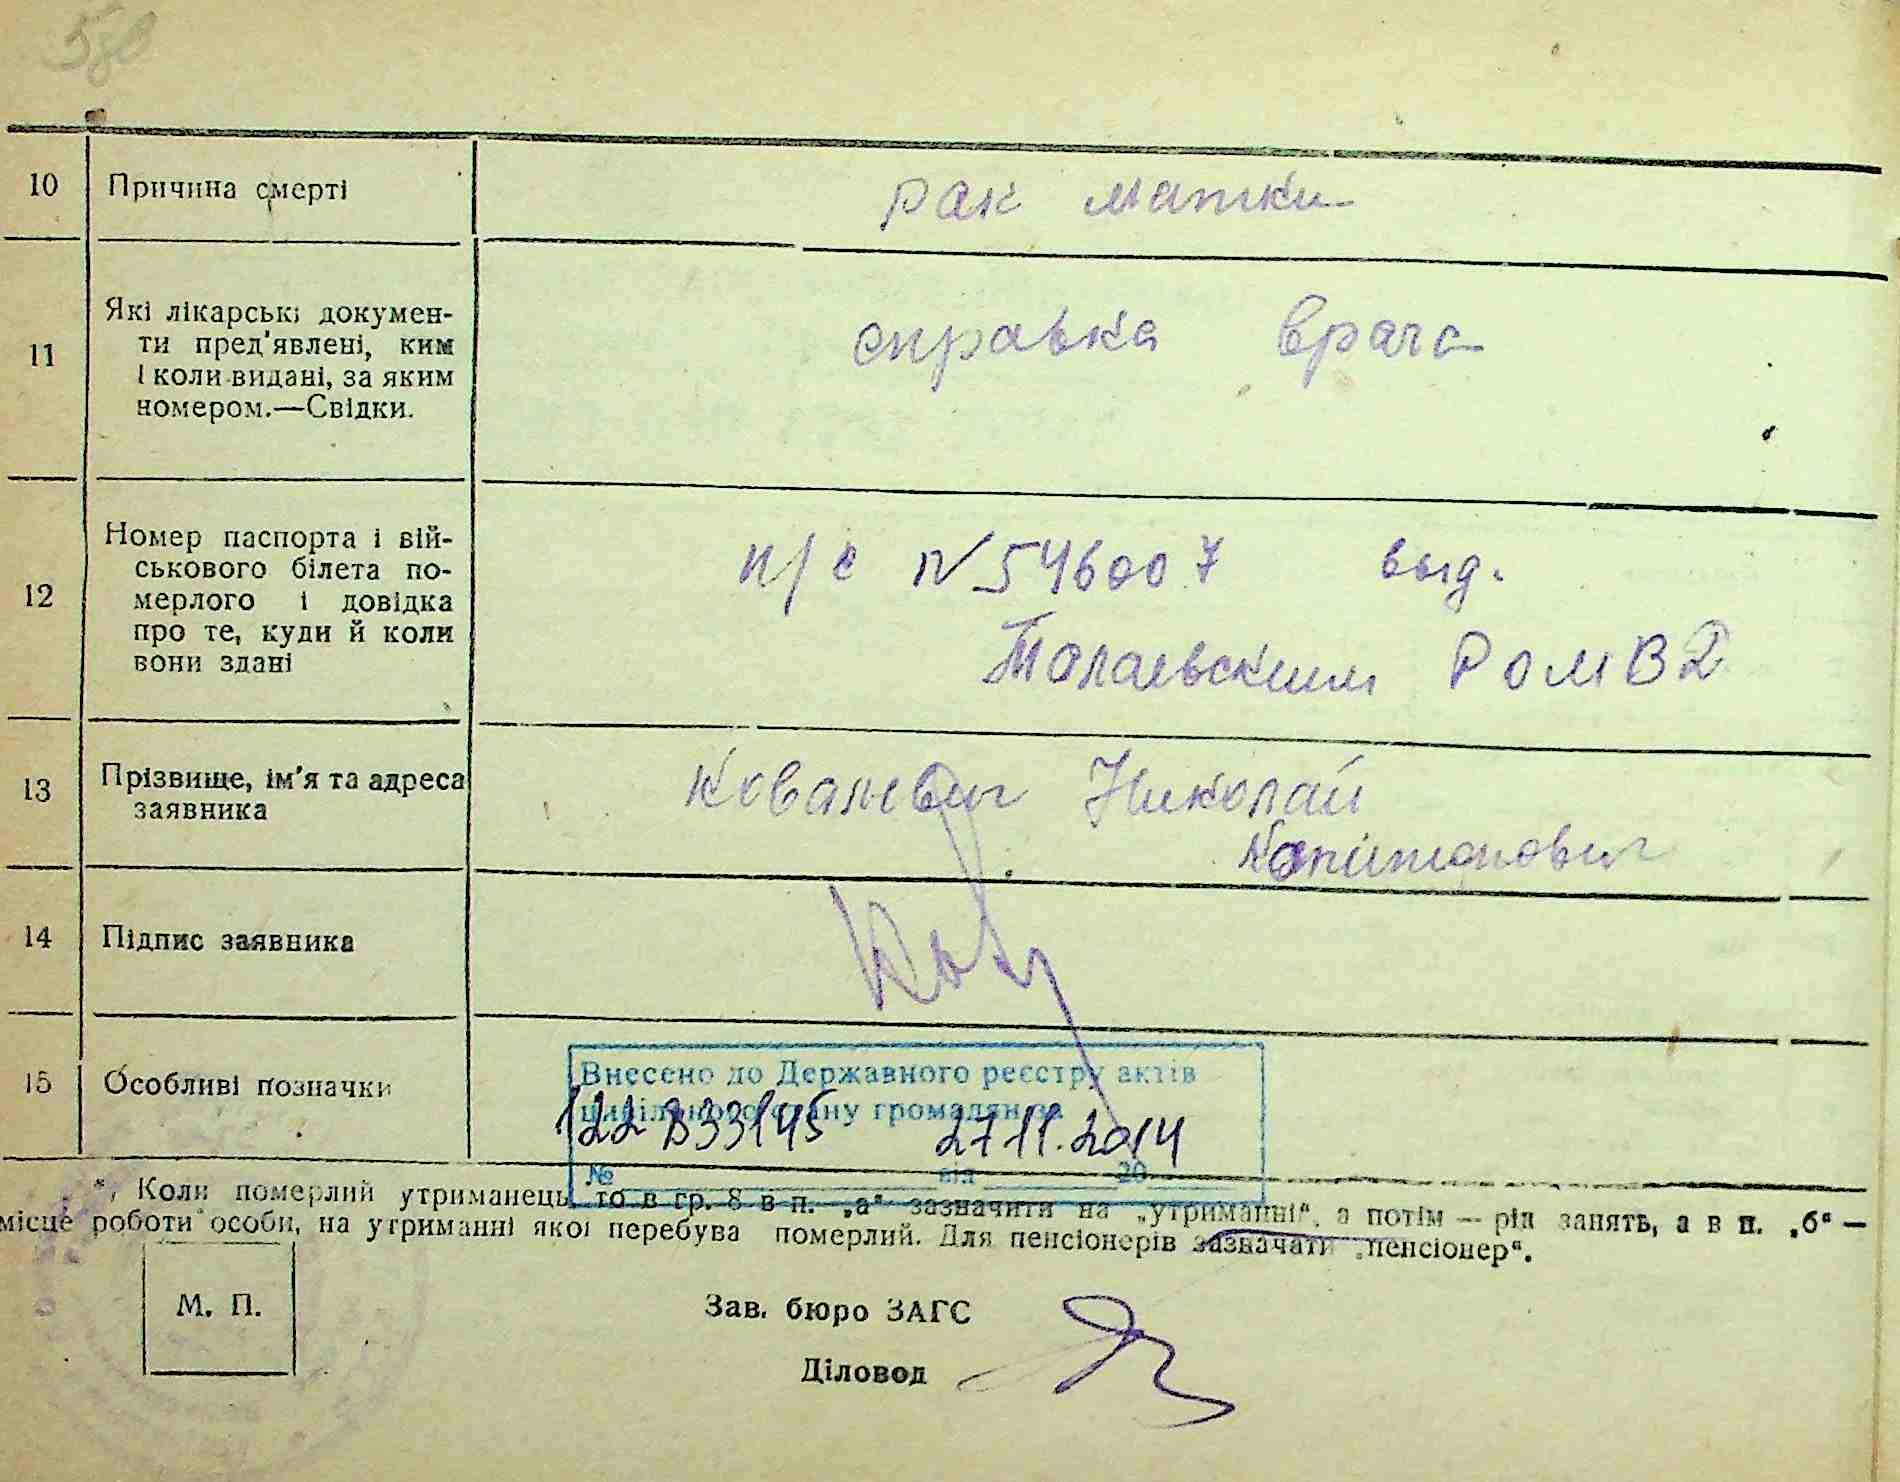 580
10 Причина смерті рак матки
11 Які лікарські докумен-
ти пред'явлені, ким
і коли видані, за яким
номером.—Свідки.
справка врача
12 Номер паспорта і вій-
ськового білета по-
мерлого і довідка
про те, куди й коли
вони здані
п/с N 546007 выд.
РОМВД
13 Прізвище, ім'я та адреса
заявника
Николай
Капитонович
14 Підпис заявника
15 Особливі позначки
Внесено до Державного реєстру актів
цивільного стану громадян за
122 833145 27 11. 2014
№ від 20
*) Коли померлий утриманець, то в гр. 8 в п. „а“ зазначити на „утриманні“, а потім — рід занять, а в п. „б“ —
місце роботи особи, на утриманні якої перебува померлий. Для пенсіонерів зазначати „пенсіонер“.
М. П.
Зав. бюро ЗАГС
Діловод